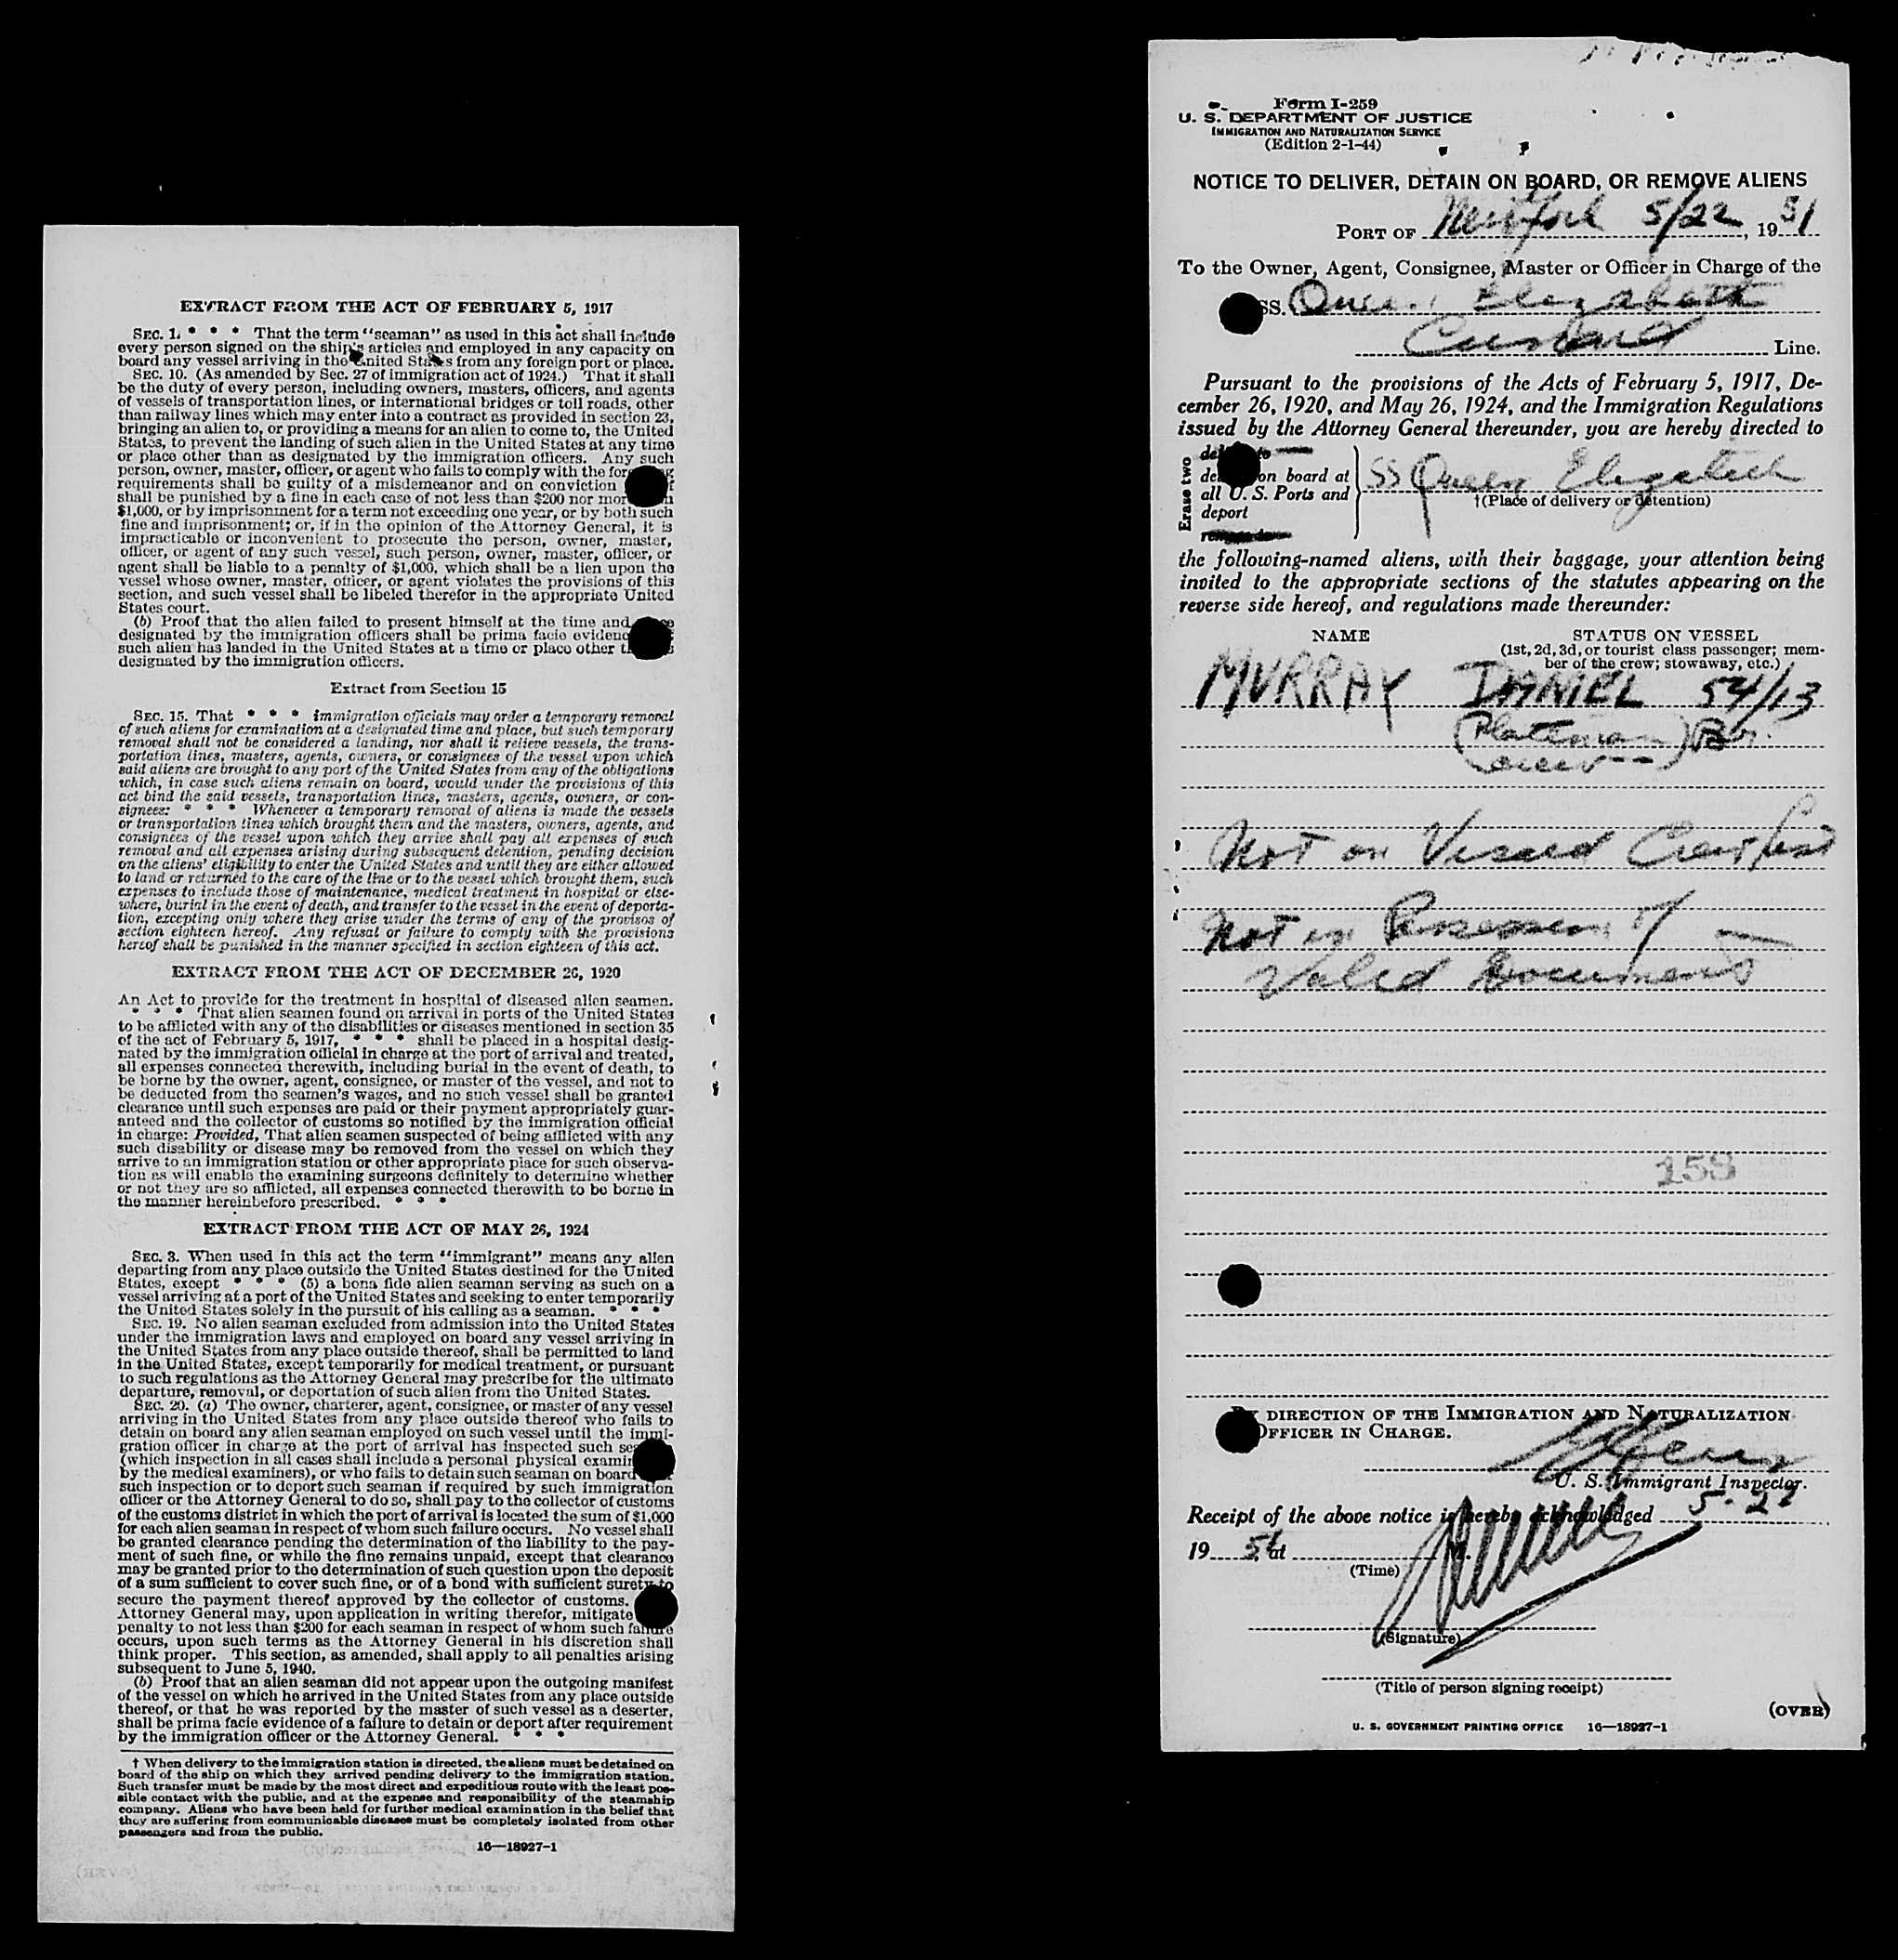 EXTRACT FROM THE ACT OF FEBRUARY 5, 1917
SEC. 1. * * * That the term "seaman" as used in this act shall include
every person signed on the ship's articles and employed in any capacity on
board any vessel arriving in the United States from any foreign port or place.
SEC. 10. (As amended by Sec. 27 of immigration act of 1924.) That it shall
be the duty of every person, including owners, masters, officers, and agents
of vessels of transportation lines, or international bridges or toll roads, other
than railway lines which may enter into a contract as provided in section 23,
bringing an alien to, or providing a means for an alien to come to, the United
States, to prevent the landing of such alien in the United States at any time
or place other than as designated by the immigration officers. Any such
person, owner, master, officer, or agent who fails to comply with the foregoing
requirements shall be guilty of a misdemeanor and on conviction
shall be punished by a fine in each case of not less than $200 nor more than
$1,000, or by imprisonment for a term not exceeding one year, or by both such
fine and imprisonment; or, if in the opinion of the Attorney General, it is
impracticable or inconvenient to prosecute the person, owner, master,
officer, or agent of any such vessel, such person, owner, master, officer, or
agent shall be liable to a penalty of $1,000, which shall be a lien upon the
vessel whose owner, master, officer, or agent violates the provisions of this
section, and such vessel shall be libeled therefor in the appropriate United
States court.
(b) Proof that the alien failed to present himself at the time and place
designated by the immigration officers shall be prima facie evidence
such alien has landed in the United States at a time or place other than as
designated by the immigration officers.
Extract from Section 15
SEC. 15. That * * * immigration officials may order a temporary removal
of such aliens for examination at a designated time and place, but such temporary
removal shall not be considered a landing, nor shall it relieve vessels, the trans-
portation lines, masters, agents, owners, or consignees of the vessel upon which
said aliens are brought to any port of the United States from any of the obligations
which, in case such aliens remain on board, would under the provisions of this
act bind the said vessels, transportation lines, masters, agents, owners, or con-
signees: * * * Whenever a temporary removal of aliens is made the vessels
or transportation lines which brought them and the masters, owners, agents, and
consignees of the vessel upon which they arrive shall pay all expenses of such
removal and all expenses arising during subsequent detention, pending decision
on the aliens' eligibility to enter the United States and until they are either allowed
to land or returned to the care of the line or to the vessel which brought them, such
expenses to include those of maintenance, medical treatment in hospital or else-
where, burial in the event of death, and transfer to the vessel in the event of deporta-
tion, excepting only where they arise under the terms of any of the provisos of
section eighteen hereof. Any refusal or failure to comply with the provisions
hereof shall be punished in the manner specified in section eighteen of this act.
EXTRACT FROM THE ACT OF DECEMBER 26, 1920
An Act to provide for the treatment in hospital of diseased alien seamen.
* * * That alien seamen found on arrival in ports of the United States
to be afflicted with any of the disabilities or diseases mentioned in section 35
of the act of February 5, 1917, * * * shall be placed in a hospital desig-
nated by the immigration official in charge at the port of arrival and treated,
all expenses connected therewith, including burial in the event of death, to
be borne by the owner, agent, consignee, or master of the vessel, and not to
be deducted from the seamen's wages, and no such vessel shall be granted
clearance until such expenses are paid or their payment appropriately guar-
anteed and the collector of customs so notified by the immigration official
in charge: Provided, That alien seamen suspected of being afflicted with any
such disability or disease may be removed from the vessel on which they
arrive to an immigration station or other appropriate place for such observa-
tion as will enable the examining surgeons definitely to determine whether
or not they are so afflicted, all expenses connected therewith to be borne in
the manner hereinbefore prescribed. * * *
EXTRACT FROM THE ACT OF MAY 26, 1924
SEC. 3. When used in this act the term "immigrant" means any alien
departing from any place outside the United States destined for the United
States, except * * * (5) a bona fide alien seaman serving as such on a
vessel arriving at a port of the United States and seeking to enter temporarily
the United States solely in the pursuit of his calling as a seaman. * * *
SEC. 19. No alien seaman excluded from admission into the United States
under the immigration laws and employed on board any vessel arriving in
the United States from any place outside thereof, shall be permitted to land
in the United States, except temporarily for medical treatment, or pursuant
to such regulations as the Attorney General may prescribe for the ultimate
departure, removal, or deportation of such alien from the United States.
SEC. 20. (a) The owner, charterer, agent, consignee, or master of any vessel
arriving in the United States from any place outside thereof who fails to
detain on board any alien seaman employed on such vessel until the immi-
gration officer in charge at the port of arrival has inspected such seaman
(which inspection in all cases shall include a personal physical examination
by the medical examiners), or who fails to detain such seaman on board
such inspection or to deport such seaman if required by such immigration
officer or the Attorney General to do so, shall pay to the collector of customs
of the customs district in which the port of arrival is located the sum of $1,000
for each alien seaman in respect of whom such failure occurs. No vessel shall
be granted clearance pending the determination of the liability to the pay-
ment of such fine, or while the fine remains unpaid, except that clearance
may be granted prior to the determination of such question upon the deposit
of a sum sufficient to cover such fine, or of a bond with sufficient surety to
secure the payment thereof approved by the collector of customs.
Attorney General may, upon application in writing therefor, mitigate
penalty to not less than $200 for each seaman in respect of whom such failure
occurs, upon such terms as the Attorney General in his discretion shall
think proper. This section, as amended, shall apply to all penalties arising
subsequent to June 5, 1940.
(b) Proof that an alien seaman did not appear upon the outgoing manifest
of the vessel on which he arrived in the United States from any place outside
thereof, or that he was reported by the master of such vessel as a deserter,
shall be prima facie evidence of a failure to detain or deport after requirement
by the immigration officer or the Attorney General. * * *
† When delivery to the immigration station is directed, the aliens must be detained on
board of the ship on which they arrived pending delivery to the immigration station.
Such transfer must be made by the most direct and expeditious route with the least pos-
sible contact with the public, and at the expense and responsibility of the steamship
company. Aliens who have been held for further medical examination in the belief that
they are suffering from communicable diseases must be completely isolated from other
passengers and from the public.
16—18927-1
Form I-259
U. S. DEPARTMENT OF JUSTICE
IMMIGRATION AND NATURALIZATION SERVICE
(Edition 2-1-44)
NOTICE TO DELIVER, DETAIN ON BOARD, OR REMOVE ALIENS
PORT OF New York 5/22, 1951
To the Owner, Agent, Consignee, Master or Officer in Charge of the
SS. Queen Elizabeth
Cunard Line.
Pursuant to the provisions of the Acts of February 5, 1917, De-
cember 26, 1920, and May 26, 1924, and the Immigration Regulations
issued by the Attorney General thereunder, you are hereby directed to
Erase two
on board at
all U. S. Ports and
deport
SS Queen Elizabeth
†(Place of delivery or detention)
the following-named aliens, with their baggage, your attention being
invited to the appropriate sections of the statutes appearing on the
reverse side hereof, and regulations made thereunder:
NAME STATUS ON VESSEL
(1st, 2d, 3d, or tourist class passenger; mem-
ber of the crew; stowaway, etc.)
MURRAY DANIEL 54/13
(Plateman) Br.
(crew)
Not on Visaed Crew List
Not in Possession of
Valid Documents
158
BY DIRECTION OF THE IMMIGRATION AND NATURALIZATION
OFFICER IN CHARGE.
U. S. Immigrant Inspector.
Receipt of the above notice is hereby acknowledged 5-22
19 51 at M.
(Time)
(Signature)
(Title of person signing receipt)
(OVER)
U. S. GOVERNMENT PRINTING OFFICE 16—18927-1